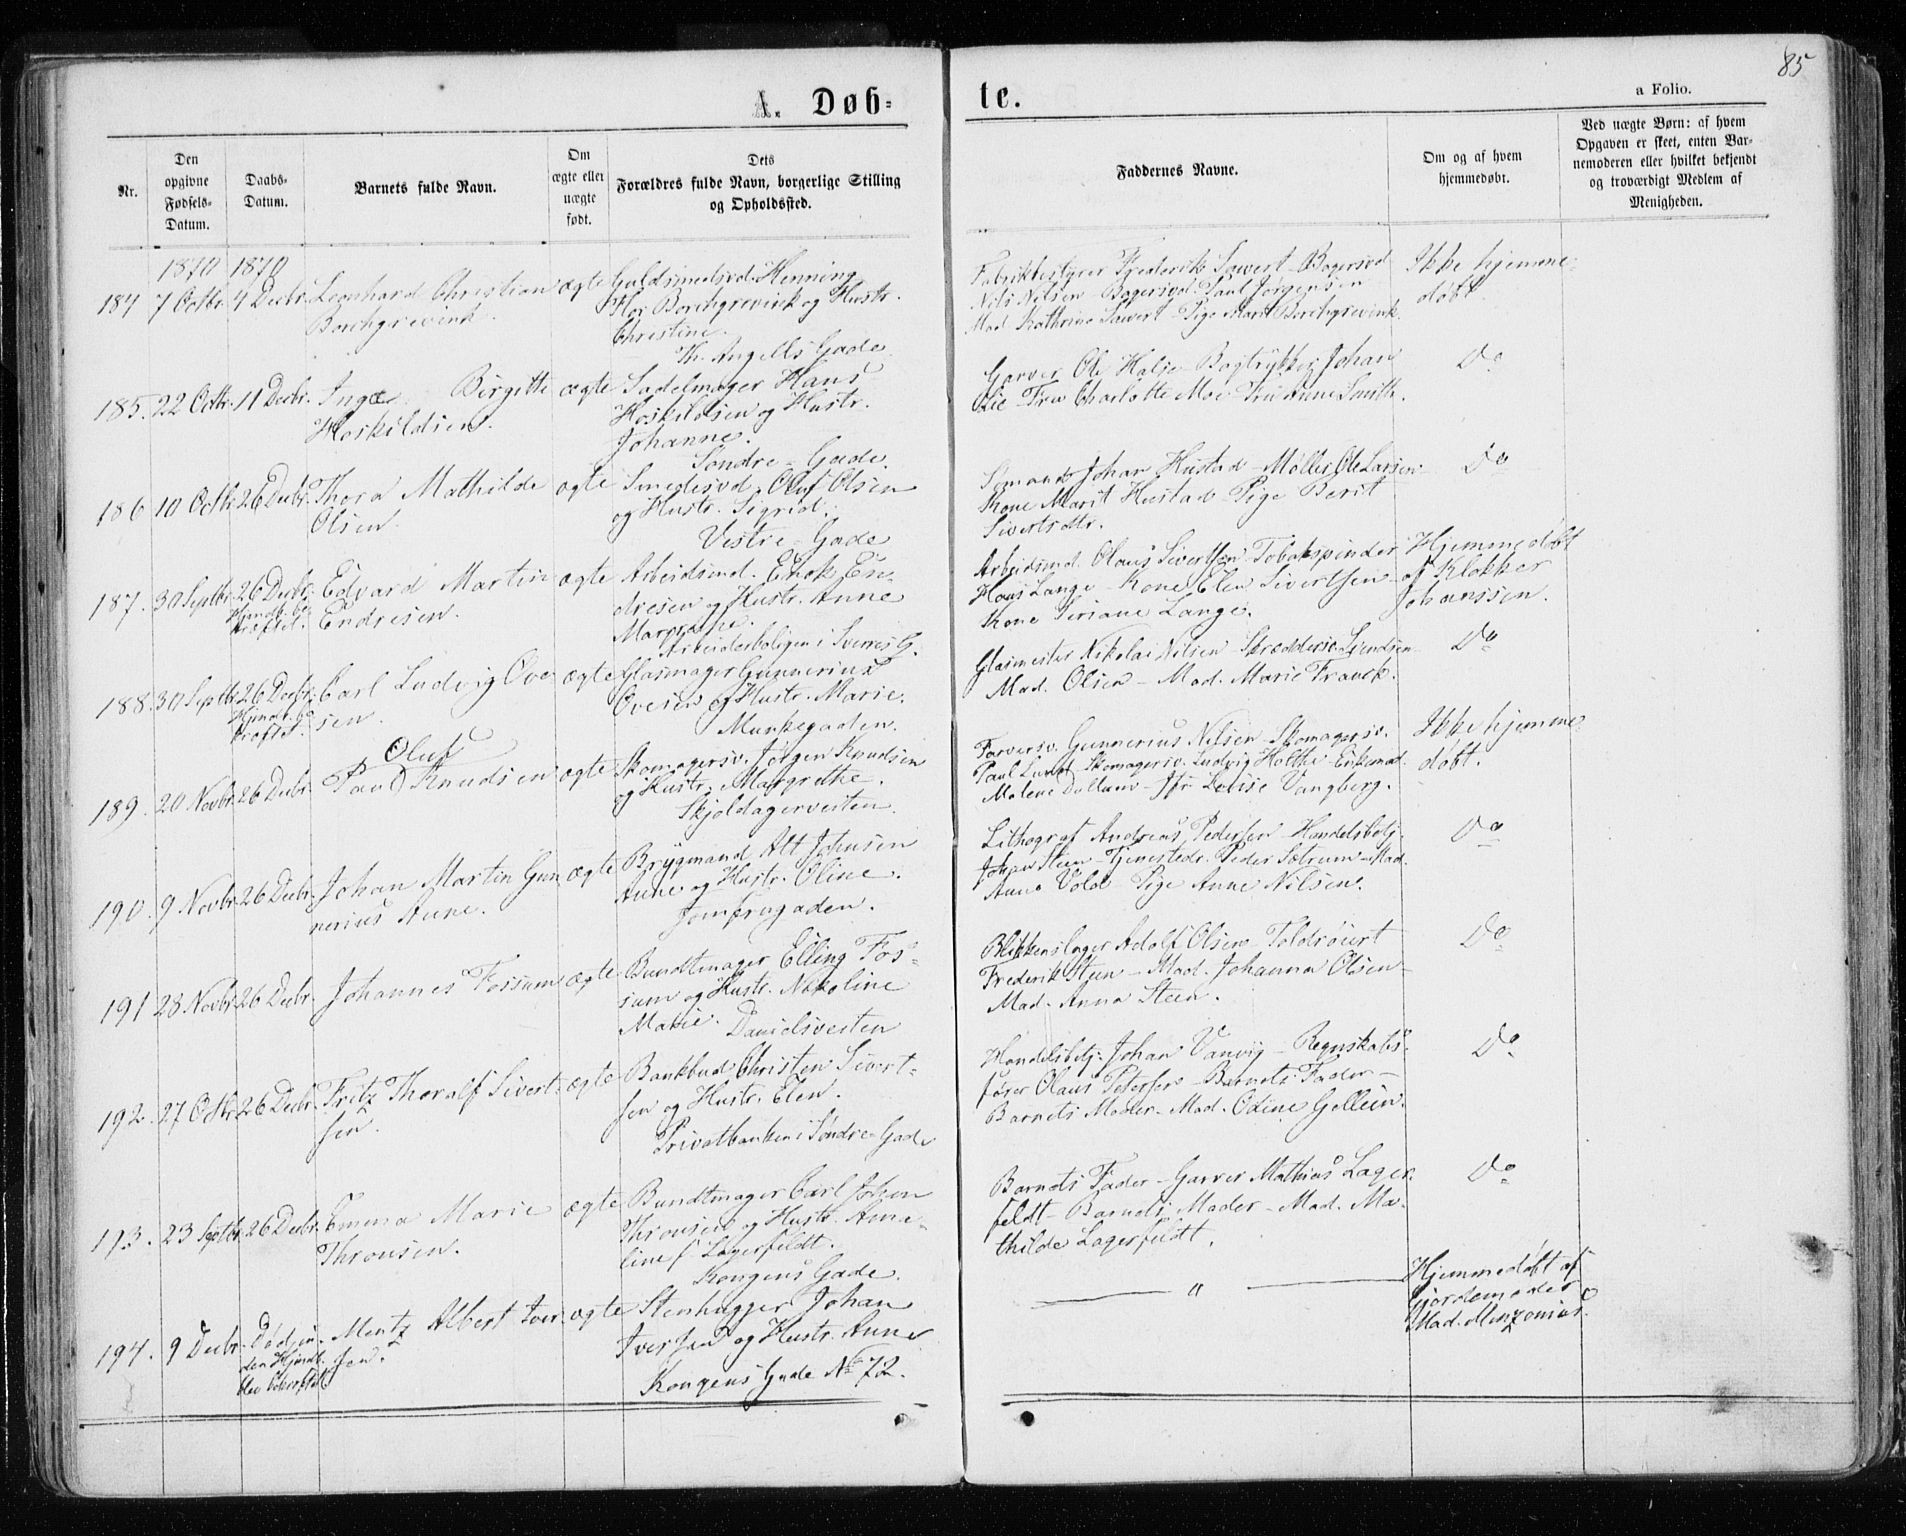 85
A. Døb-
te.
a Folio.
Nr.
Den opgivne Fødsels-Datum.
Daabs-Datum.
Barnets fulde Navn.
Om ægte eller uægte født.
Dets Forældres fulde Navn, borgerlige Stilling og Opholdssted.
Faddernes Navne.
Om og af hvem hjemmedøbt.
Ved uægte Børn: af hvem Opgaven er skeet, enten Barnemoderen eller hvilket bekjendt og troværdigt Medlem af Menigheden.
1870 1870
184 7 Octbr. 4 Decbr. Leonhard Christian ægte Guldsmedsvd. Henning
Borchgrevink. Flor Borchgrevink og Hustr.
Christine.
Th. Angells Gade
Fabrikbestyrer Frederik Sawert - Bagersvd
Nils Nilsen - Bagersvd. Paul Jørgensen
Mad. Kathrine Sawert - Pige Marit Borchgrevink.
Ikke hjemme-
døbt
185. 22 Octbr. 11 Decbr. Inga Birgitte ægte Sadelmager Hans
Hoskildsen. Hoskildsen og Hustr.
Johanne.
Søndre-Gade.
Garver Ole Halse - Bogtrykker Johan
Lie - Fru Charlotte Moe - Fru Anne Smith.
Do
186 10 Octbr. 26 Decbr. Thora Mathilde ægte Smedesvd. Oluf Olsen
Olsen. og Hustr. Sigrid.
Vestre-Gade
Sømand Johan Hustad - Møller Ole Larsen
Kone Marit Hustad - Pige Berit
Sivertsdtr.
Do
187. 30 Septbr. 26 Decbr. Edvard Martin ægte Arbeidsmd. Enok En-
Endresen. dresen og Hustr. Anne
Margrethe.
Arbeiderboligen i Sverres G.
Arbeidsmd. Olaus Sivertsen - Tobakspinder
Hans Lange - Kone Elen Sivertsen
Kone Seriane Lange.
Hjemmedøbt
af Klokker
Johanssen.
188. 30 Septbr. 26 Decbr. Carl Ludvig Ove ægte Glasmager Gunnerius
sen. Ovesen og Hustr. Marie.
Munkegaden.
Glasmester Nikolai Nilsen - Skrædders. Svendsen
Mad. Olsen - Mad. Marie Franck.
Do
Oluf
189. 20 Novbr. 26 Decbr. Paul Knudsen ægte Skomagersv. Jørgen Knudsen
og Hustr. Margrethe.
Skjoldagerveiten.
Farversv. Gunnerius Nilsen - Skomagersv.
Paul Lund - Skomagersv. Ludvig Holthe - Enkemad.
Malene Dullum - Jfr. Lovise Vangberg.
Ikke hjemme
døbt.
190. 9 Novbr. 26 Decbr. Johan Martin Gun ægte Brygmand Att Johnsen
nerius Aune. Aune og Hustr. Oline.
Jomfrugaden.
Lithograf Andreas Pedersen - Handelsbetj.
Johan Steen - Tjenestedr. Peder Sætrum - Mad.
Anna Vold - Pige Anne Nilsen.
Do
191 28 Novbr. 26 Decbr. Johannes Fossum ægte Bundtmager Elling Fos-
sum og Hustr. Nikoline
Marie. Danielsveiten
Blikkenslager Adolf Olsen - Toldrouert
Frederik Steen - Mad. Johanna Olsen -
Mad. Anna Steen.
Do
192. 27 Octbr. 26 Decbr. Fritz Thoralf Sivert- ægte Bankbud Christen Sivert-
sen. sen og Hustr. Elen.
Privatbanken i Søndre-Gade
Handelsbetj. Johan Vanvig - Regnskabs-
fører Olaus Petersen - Barnets Fader -
Barnets Moder - Mad. Odine Gellein.
Do
193. 23 Septbr. 26 Decbr. Emma Marie ægte Bundtmager Carl Johan
Thronsen. Thronsen og Hustr. Anne-
line f. Lagerfeldt.
Kongens Gade.
Barnets Fader - Garver Mathias Lager-
feldt - Barnets Moder - Mad. Ma-
thilde Lagerfeldt.
Do
194. 9 Decbr. Død in- Mentz Albert Iver- ægte Stenhugger Johan
den Hjmdb. sen. Iversen og Hustr. Anne
blev bekræftet. Kongens Gade No 72.
"
Hjemmedøbt af
Gjordemoder
Mad. Menzonius.